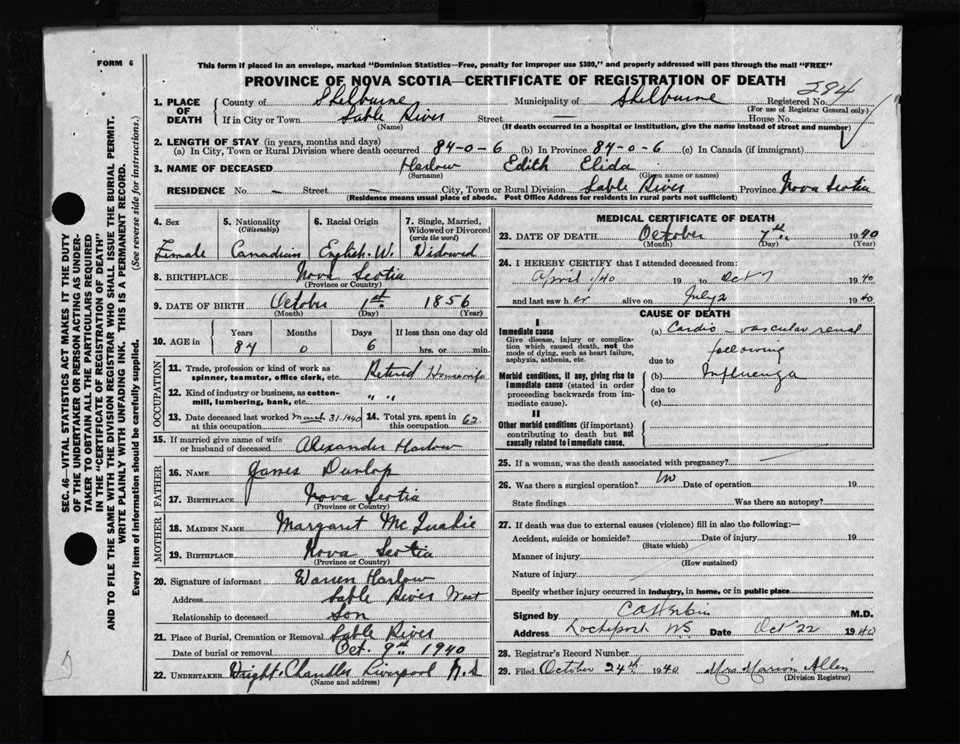 FORM 6
This form if placed in an envelope, marked "Dominion Statistics—Free, penalty for improper use $300," and properly addressed will pass through the mail "FREE"
PROVINCE OF NOVA SCOTIA—CERTIFICATE OF REGISTRATION OF DEATH
284
1. PLACE OF DEATH
County of Shelburne Municipality of Shelburne Registered No.
(For use of Registrar General only)
If in City or Town Sable River Street — House No.
(Name) (If death occurred in a hospital or institution, give the name instead of street and number)
2. LENGTH OF STAY (in years, months and days)
(a) In City, Town or Rural Division where death occurred 84-0-6 (b) In Province 84-0-6 (c) In Canada (if immigrant)
3. NAME OF DECEASED Harlow Edith Elida
(Surname) (Given name or names)
RESIDENCE No — Street — City, Town or Rural Division Sable River Province Nova Scotia
(Residence means usual place of abode. Post Office Address for residents in rural parts not sufficient)
4. Sex 5. Nationality (Citizenship) 6. Racial Origin 7. Single, Married, Widowed or Divorced (write the word)
Female Canadian English. W. Widowed
8. BIRTHPLACE Nova Scotia
(Province or Country)
9. DATE OF BIRTH October 1st 1856
(Month) (Day) (Year)
10. AGE in Years Months Days If less than one day old
84 0 6 hrs. or min.
OCCUPATION
11. Trade, profession or kind of work as spinner, teamster, office clerk, etc. Retired Housewife
12. Kind of industry or business, as cotton-mill, lumbering, bank, etc. " " "
13. Date deceased last worked at this occupation March 31. 1940 14. Total yrs. spent in this occupation 62.
15. If married give name of wife or husband of deceased Alexander Harlow
FATHER
16. NAME James Dunlop
17. BIRTHPLACE Nova Scotia
(Province or Country)
MOTHER
18. MAIDEN NAME Margaret
19. BIRTHPLACE Nova Scotia
(Province or Country)
20. Signature of informant Warren Harlow
Address Sable River West
Relationship to deceased Son
21. Place of Burial, Cremation or Removal Sable River
Date of burial or removal Oct. 9th 1940
22. UNDERTAKER Chandler Liverpool N.S
(Name and address)
MEDICAL CERTIFICATE OF DEATH
23. DATE OF DEATH October 7th 1940
(Month) (Day) (Year)
24. I HEREBY CERTIFY that I attended deceased from:
April 1/40 19 to Oct 7 1940
and last saw her alive on July 2 1940
CAUSE OF DEATH
I
Immediate cause (a) Cardio-vascular renal
Give disease, injury or complication which caused death, not the mode of dying, such as heart failure, asphyxia, asthenia, etc.
due to following
Morbid conditions, if any, giving rise to immediate cause (stated in order proceeding backwards from immediate cause).
(b) Influenza
due to
(c)
II
Other morbid conditions (if important) contributing to death but not causally related to immediate cause.
25. If a woman, was the death associated with pregnancy? —
26. Was there a surgical operation? no Date of operation 19
State findings Was there an autopsy?
27. If death was due to external causes (violence) fill in also the following:—
Accident, suicide or homicide? Date of injury 19
(State which)
Manner of injury
(How sustained)
Nature of injury
Specify whether injury occurred in industry, in home, or in public place
Signed by M.D.
Address Lockeport N.S Date Oct 22 1940
28. Registrar's Record Number
29. Filed October 24th 1940 Mrs Marion Allen
(Division Registrar)
SEC. 46—VITAL STATISTICS ACT MAKES IT THE DUTY
OF THE UNDERTAKER OR PERSON ACTING AS UNDER-
TAKER TO OBTAIN ALL THE PARTICULARS REQUIRED
IN THE "CERTIFICATE OF REGISTRATION OF DEATH"
AND TO FILE THE SAME WITH THE DIVISION REGISTRAR WHO SHALL ISSUE THE BURIAL PERMIT.
WRITE PLAINLY WITH UNFADING INK. THIS IS A PERMANENT RECORD.
Every item of information should be carefully supplied. (See reverse side for instructions.)